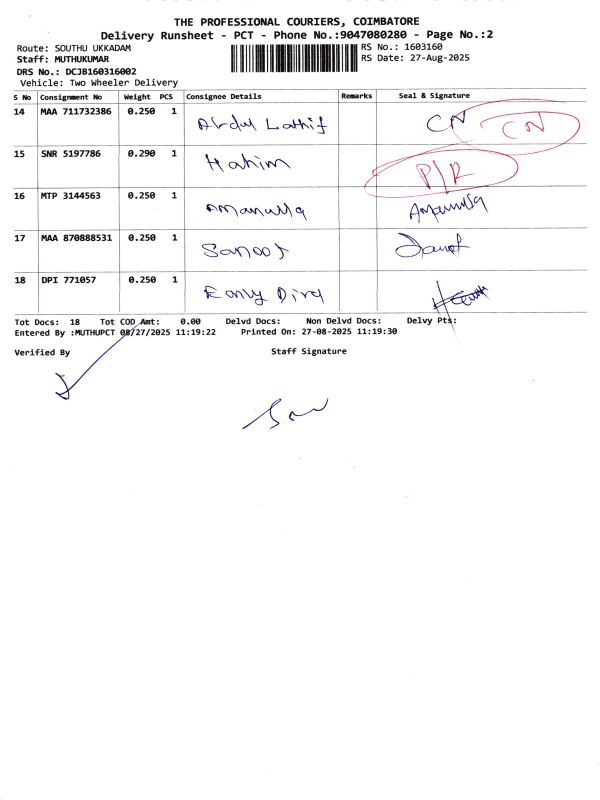 THE PROFESSIONAL COURIERS, COIMBATORE
Delivery Runsheet - PCT - Phone No.:9047080280 - Page No.:2
Route: SOUTHU UKKADAM RS No.: 1603160
Staff: MUTHUKUMAR RS Date: 27-Aug-2025
DRS No.: DCJB160316002
Vehicle: Two Wheeler Delivery
S No Consignment No Weight PCS Consignee Details Remarks Seal & Signature
14 MAA 711732386 0.250 1 Abdul Lathif CN CN
15 SNR 5197786 0.290 1 Hakim P/R
16 MTP 3144563 0.250 1 Amanulla Amanulla
17 MAA 870888531 0.250 1 Sanooj
18 DPI 771057 0.250 1
Tot Docs: 18 Tot COD Amt: 0.00 Delvd Docs: Non Delvd Docs: Delvy Pts:
Entered By :MUTHUPCT 08/27/2025 11:19:22 Printed On: 27-08-2025 11:19:30
Verified By Staff Signature